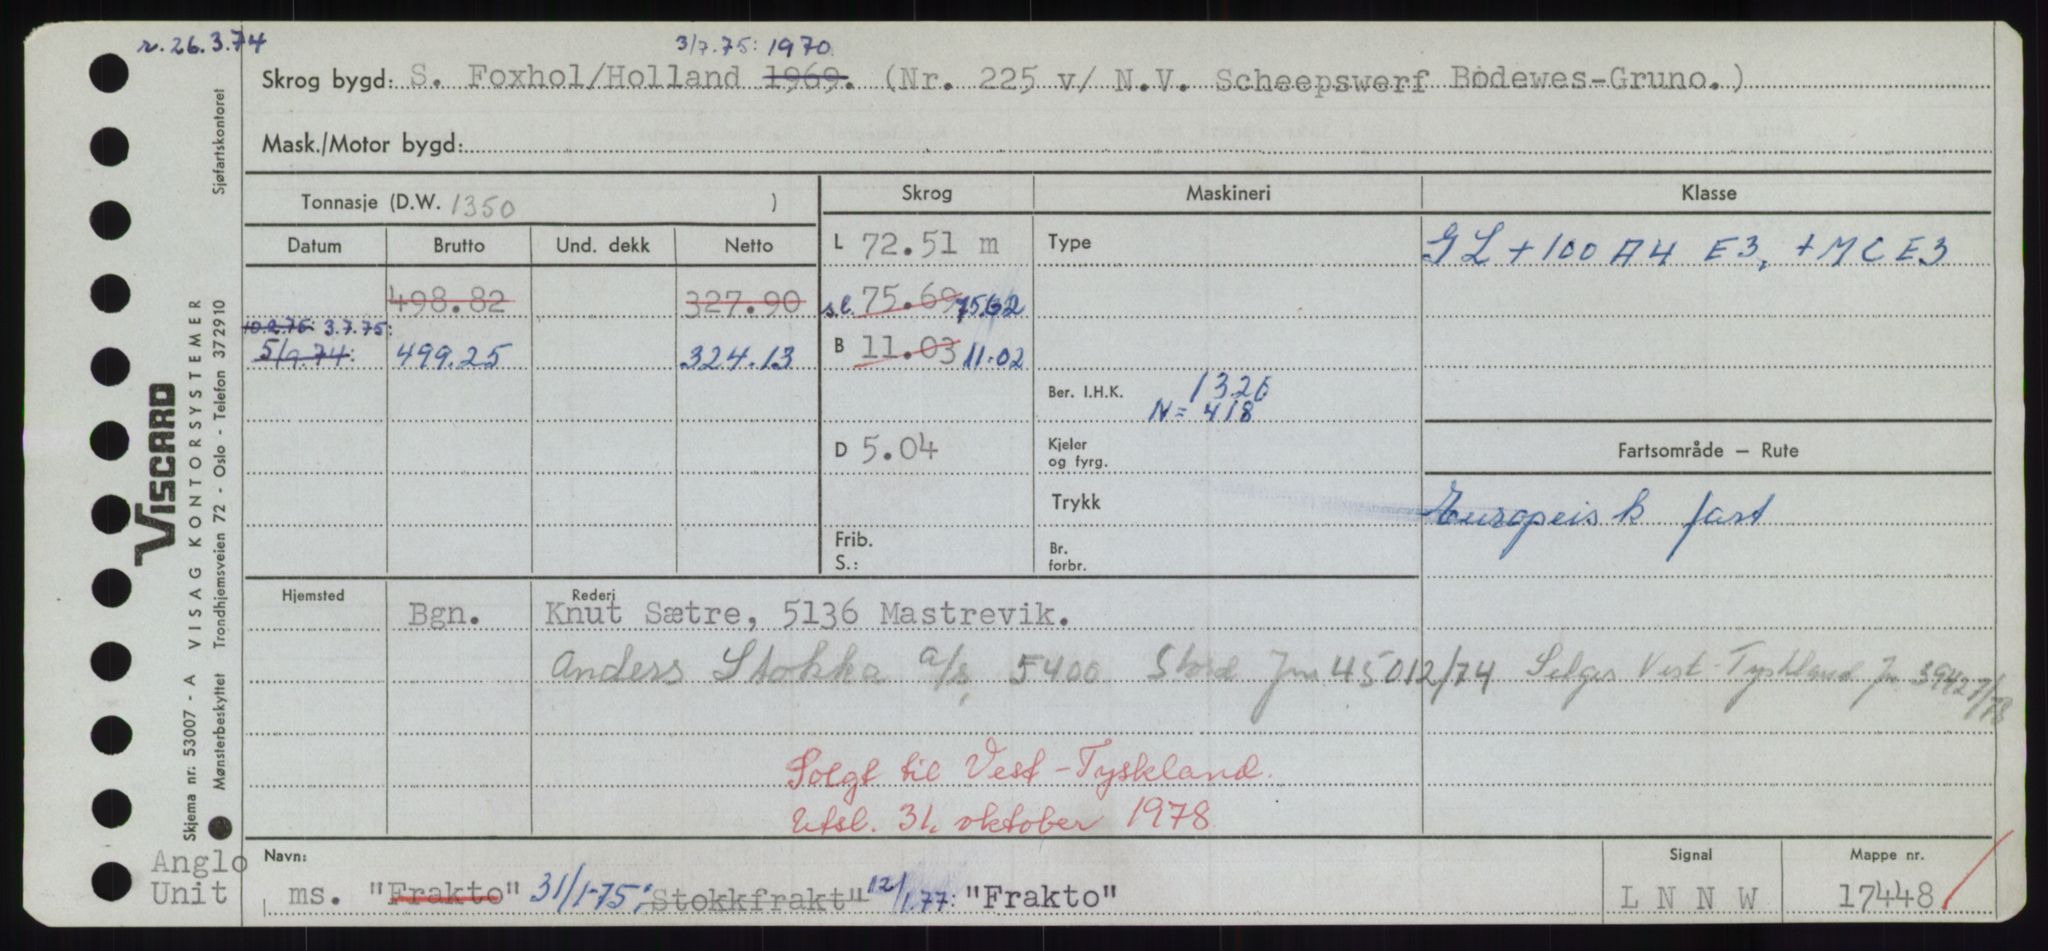 r. 26.3.74
3/7.75: 1970
Skrog bygd: S. Foxhol/Holland 1969. (Nr. 225 v/ N.V. Scheepswerf Bodewes-Gruno.)
Mask./Motor bygd:
Tonnasje (D.W. 1350 )
Skrog
Maskineri
Klasse
Datum Brutto Und. dekk Netto
L 72.51 m
Type
GL + 100 A4 E3, + MC E3
498.82 327.90
s.l. 75.69 75.62
10.2.75 3.7.75:
5/9.74: 499.25 324.13
B 11.03 11.02
Ber. I.H.K. 1326
N = 418
D 5.04
Kjeler
og fyrg.
Fartsområde – Rute
Trykk
Europeisk fart
Frib.
S.:
Br.
forbr.
Hjemsted
Rederi
Bgn. Knut Sætre, 5136 Mastrevik.
Anders Stokka a/s, 5400 Stord Jnr 45012/74 Selges Vest-Tyskland Jn 39427/78
Solgt til Vest-Tyskland.
Utsl. 31. oktober 1978
Navn:
Signal
Mappe nr.
ms. "Frakto" 31/1-75: Stokkfrakt" 12/1.77: "Frakto"
L N N W
17448
Anglo
Unit
VISCARD
Skjema nr. 53007 - A VISAG KONTORSYSTEMER
Mønsterbeskyttet Trondhjemsveien 72 - Oslo - Telefon 372910 Sjøfartskontoret